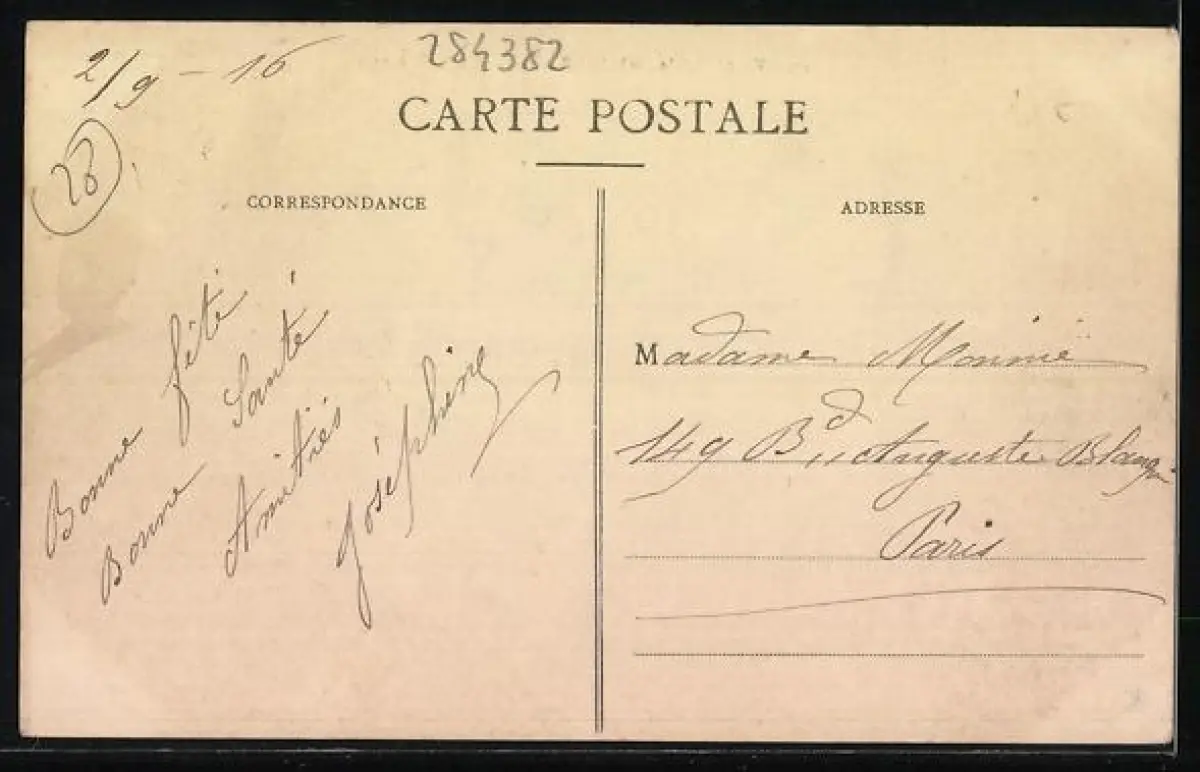 2/9 - 16
284382
28
CARTE POSTALE
CORRESPONDANCE
ADRESSE
Bonne fête
Bonne Santé
Amitiés
Joséphine
Madame
149 Bd Auguste Blanqui
Paris